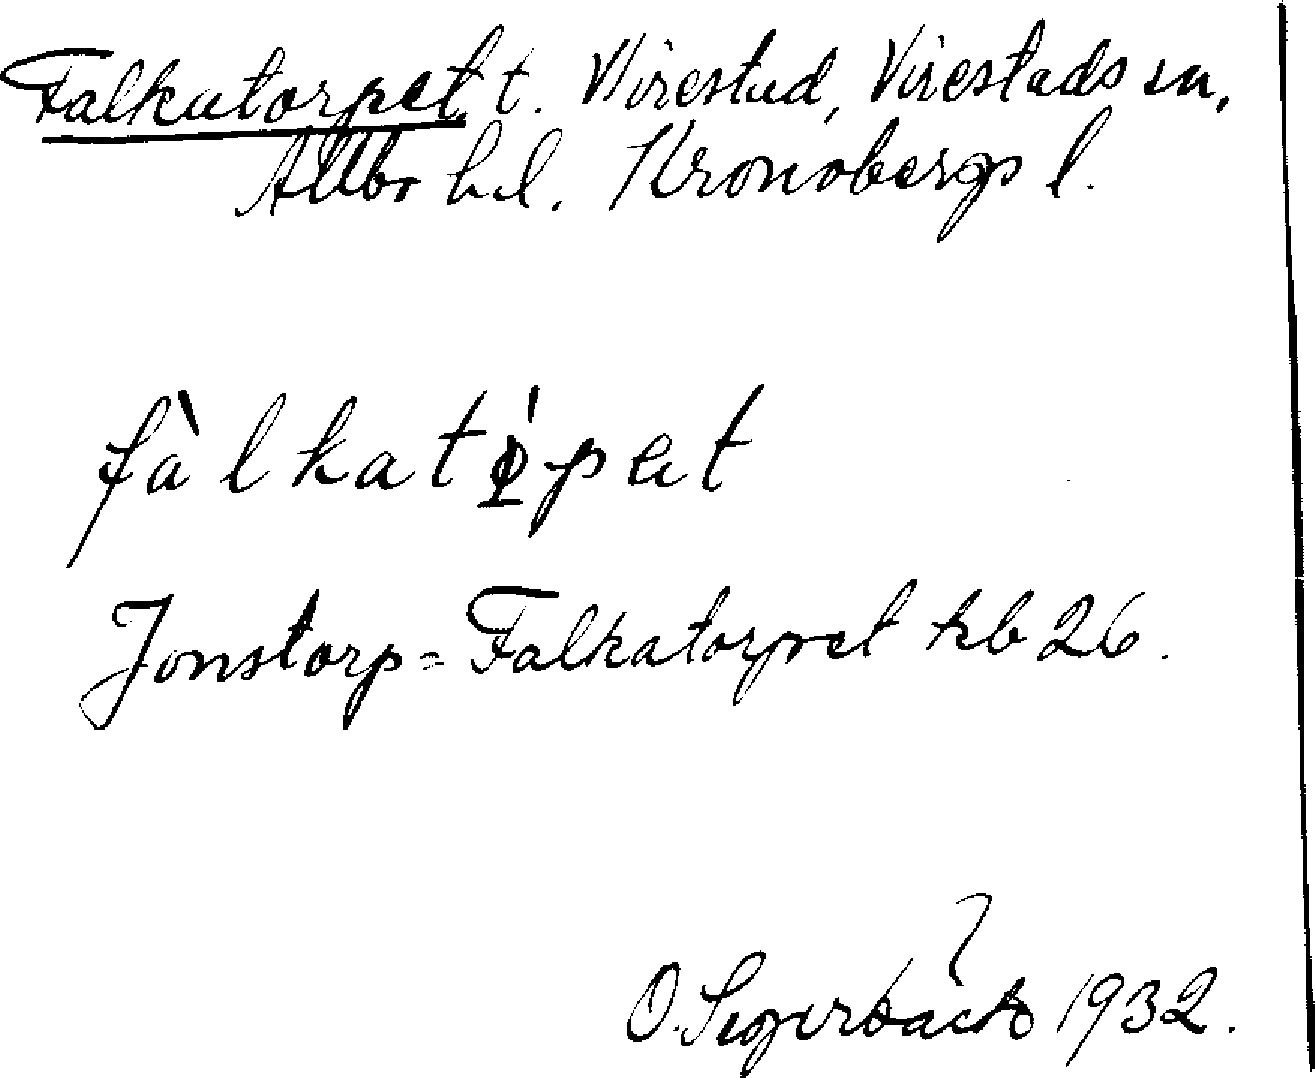 Falkatorpet t. Virestad, Virestads sn,
Allbo hd. Kronobergs l.
fàlkatǫ́pət
Jonstorp = Falkatorpet kb 26.
O. Segerbäck 1932.